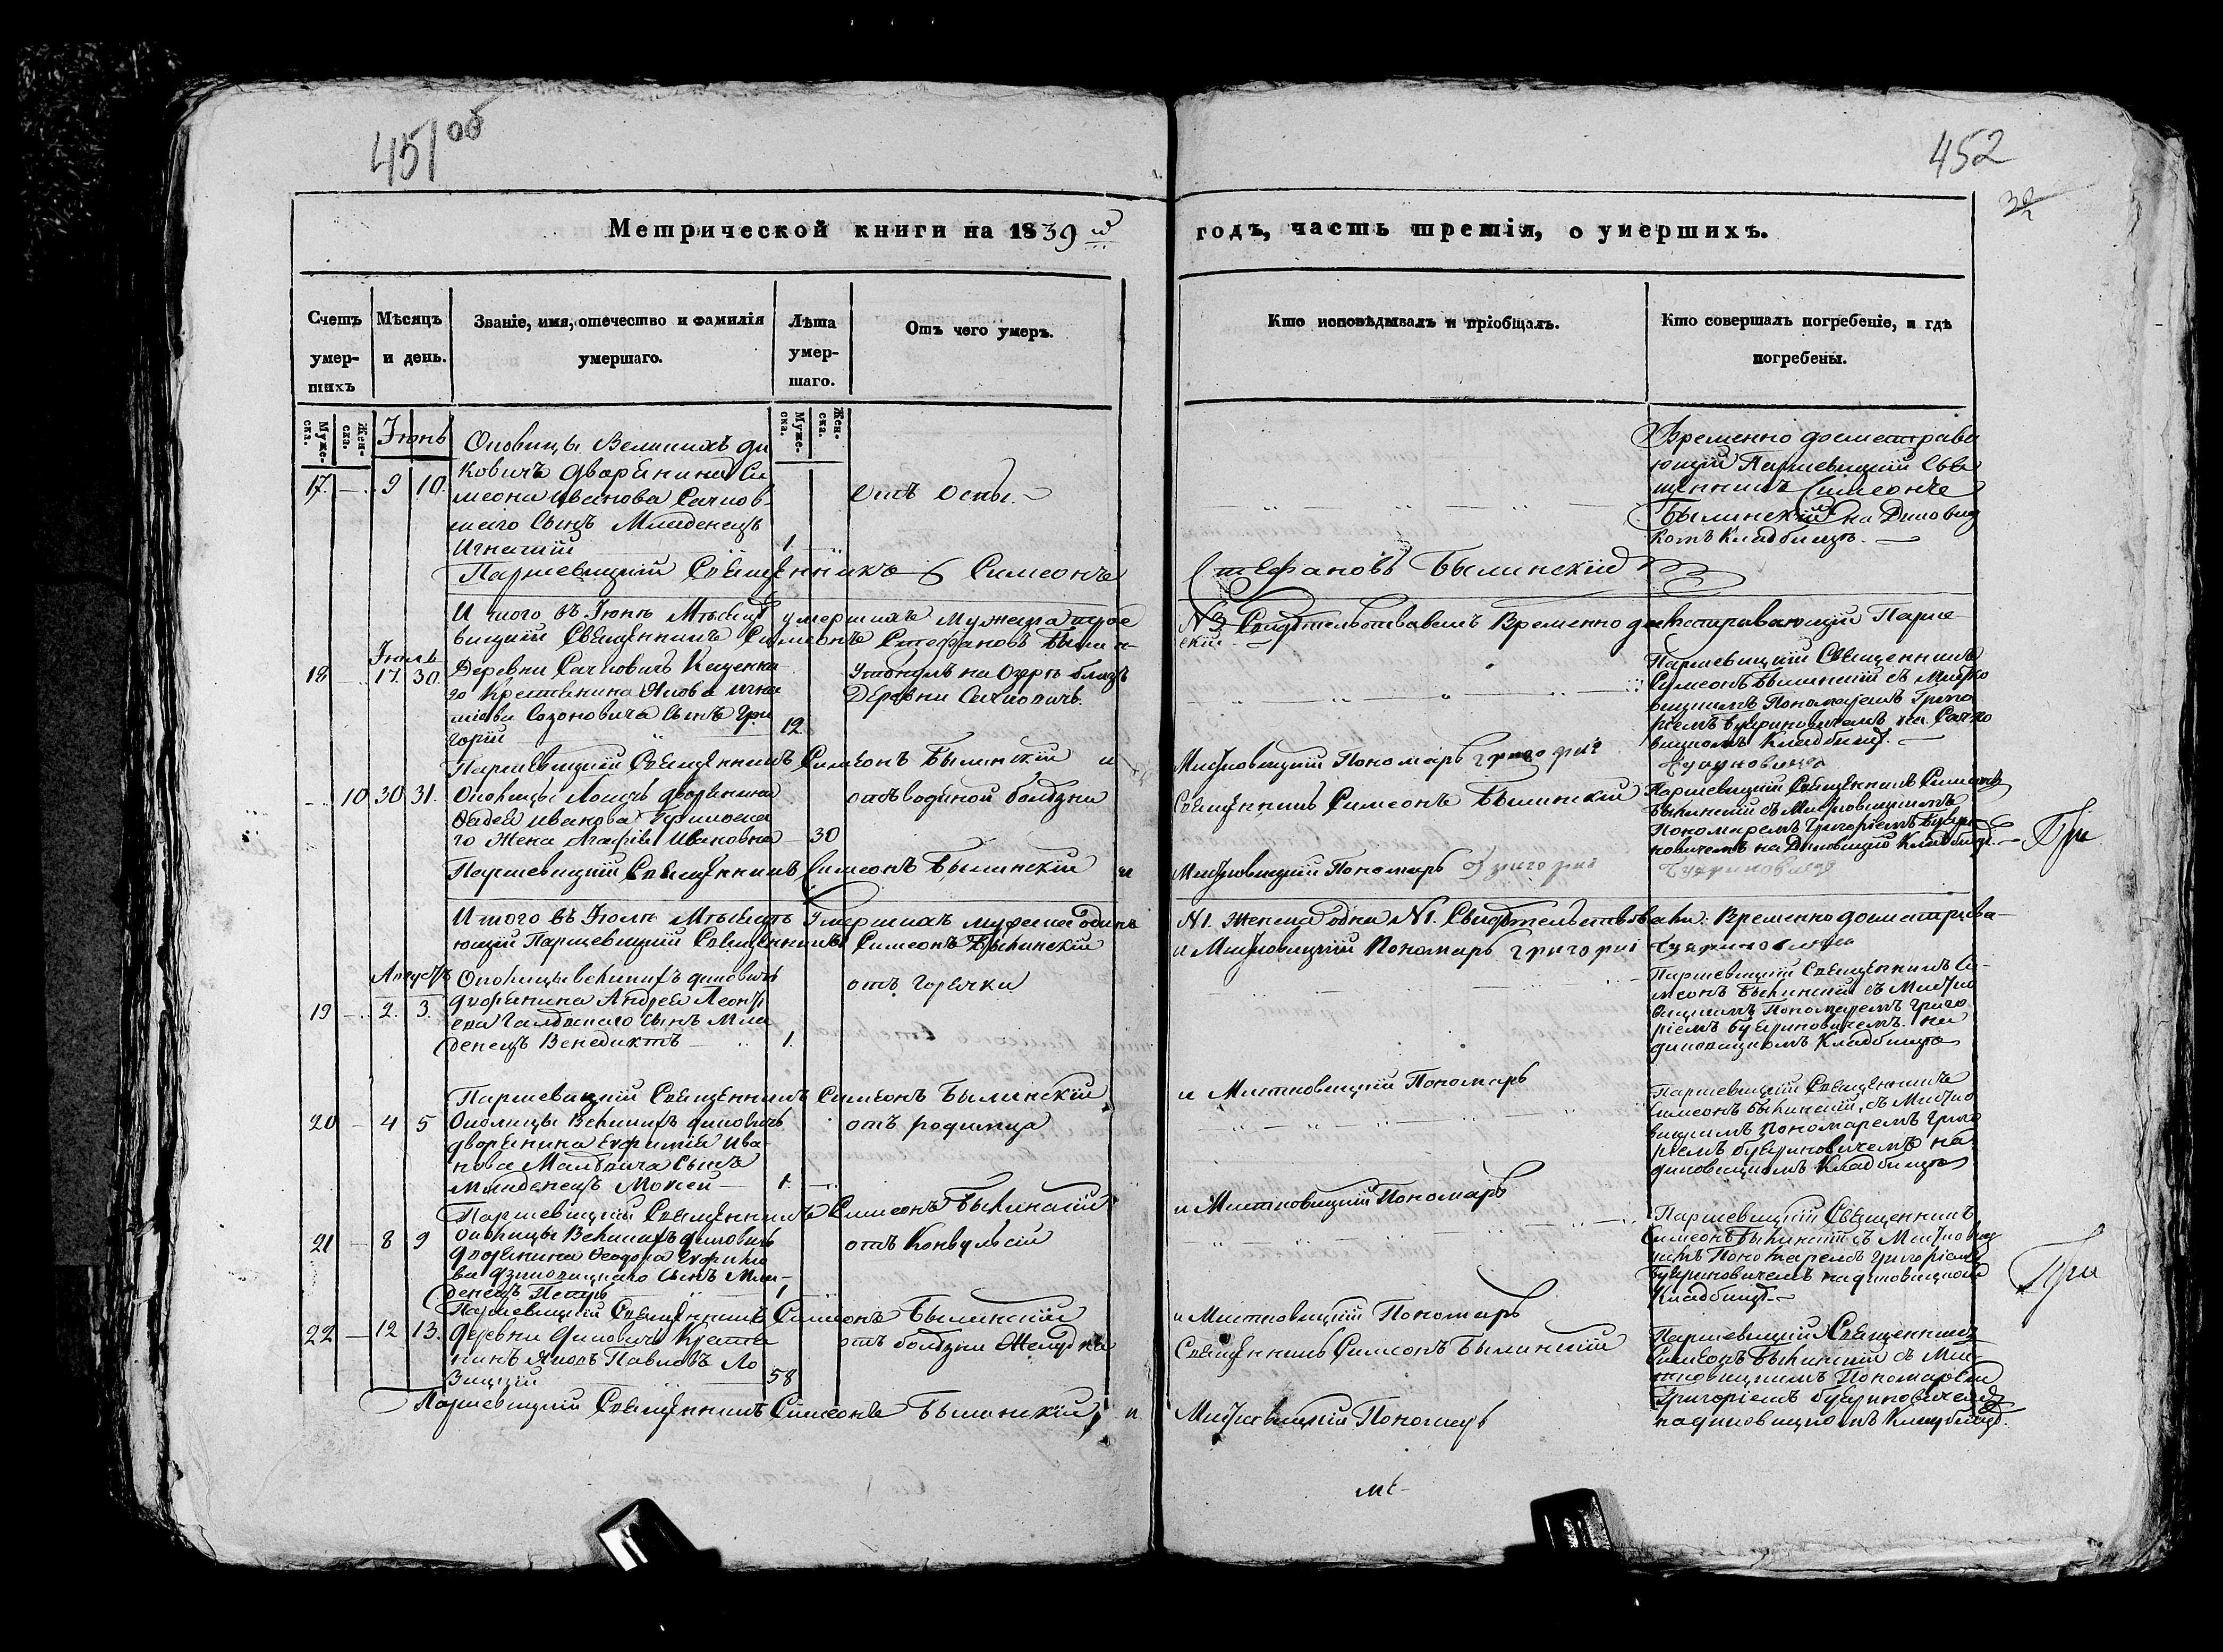 451 об
452
Метрической книги на 1839 й
годъ, часть третія, о умершихъ.
Счетъ умер-
шихъ
Мѣсяцъ
и день.
Званіе, имя, отечество и фамилія
умершаго.
Лѣта
умер-
шаго.
Отъ чего умеръ.
Кто исповѣдывалъ и пріобщалъ.
Кто совершалъ погребеніе, и гдѣ
погребены.
Муже-
ска.
Жен-
ска.
Муже-
ска.
Жен-
ска.
Іюнь
17. — 9 10.
Околицы Великихъ ди
ковичъ дворянина Си
меона Иванова Сачков-
скаго Сынъ Младенецъ
Игнатій 1.
отъ Оспы.
Временно досматрива
ющій Паршевицкій Свя
щенникъ Симеонъ
Былинскій на Диковиц
комъ Кладбищѣ.
Паршевицкій Священникъ Симеонъ
Стефановъ Былинскій
Итого въ Іюнѣ Мѣсяцѣ умершихъ мужеска трое
№3 Свидѣтельствовалъ Временно досматривающій Парше
вицкій Священникъ Симеонъ Стефановъ Былин
скій
Іюль
18 — 17. 30.
Деревни Сачковичъ
го Крестьянина Якова Игна
тіева Созоновича Сынъ Гри
горій 12
Утонулъ на Озерѣ близъ
Деревни Сачковичъ.
Паршевицкій Священникъ
Симеонъ Былинскій съ Митко
вицкимъ Пономаремъ Григо
ріемъ Бухриновичемъ на Сачко
вицкомъ Кладбищѣ.
Паршевицкій Священникъ Симеонъ Былинскій и
Митковицкій Пономарь Григорій
— 10 30 31.
Околицы дворянина
Иванова
го Жена Агафія Ивановна 30
отъ водяной болѣзни
Священникъ Симеонъ Былинскій
Паршевицкій Священникъ Симеонъ
Былинскій съ Митковицкимъ
Пономаремъ Григоріемъ Бухри
новичемъ на Диковицко Кладбищѣ.
При
Паршевицкій Священникъ Симеонъ Былинскій и
Митковицкій Пономарь Григорій
Итого въ Іюлѣ Мѣсяцѣ Умершихъ мужеска одинъ
№1. Женска одна №1. Свидѣтельствовали: Временно досматрива-
ющій Паршевицкій Священникъ Симеонъ Былинскій
и Митковицкій Пономарь Григорій
Августъ
19 — 2. 3.
Околицы Великихъ диковичъ
дворянина Андрея Леонть
ева сынъ Мла
денецъ Венедиктъ 1.
отъ Горячки
Паршевицкій Священникъ Си-
меонъ Былинскій съ Митко
вицкимъ Пономаремъ Григо
ріемъ Бухриновичемъ на
диковицкомъ Кладбищѣ
Паршевицкій Священникъ Симеонъ Былинскій
и Митковицкій Пономарь
20 — 4 5
Околицы Великихъ диковичъ
дворянина Ефимія Ива-
нова Сынъ
младенецъ Моисей 1.
отъ родимца
Паршевицкій Священникъ
Симеонъ Былинскій, съ Митко
вицкимъ Пономаремъ Григо
ріемъ Бухриновичемъ на
диковицкомъ Кладбищѣ
Паршевицкій Священникъ Симеонъ Былинскій
и Митковицкій Пономарь
21 — 8 9
Околицы Великихъ диковичъ
дворянина Ѳеодора
Сынъ Мла-
денецъ Петръ 1
отъ Конвульсій
Паршевицкій Священникъ
Симеонъ Былинскій съ Митковиц
кимъ Пономаремъ Григоріемъ
Бухриновичемъ на диковицкомъ
Кладбищѣ.
При
Паршевицкій Священникъ Симеонъ Былинскій
и Митковицкій Пономарь
22 — 12 13.
деревни диковичъ Крестья
нинъ Яковъ Павловъ Ло
зицкій 58
отъ болѣзни Желудка
Священникъ Симеонъ Былинскій
Паршевицкій Священникъ
Симеонъ Былинскій съ Мит-
ковицкимъ Пономаремъ
Григоріемъ Бухриновичемъ
на диковицкомъ Кладбищѣ.
Паршевицкій Священникъ Симеонъ Былинскій, и
Митковицкій Пономарь